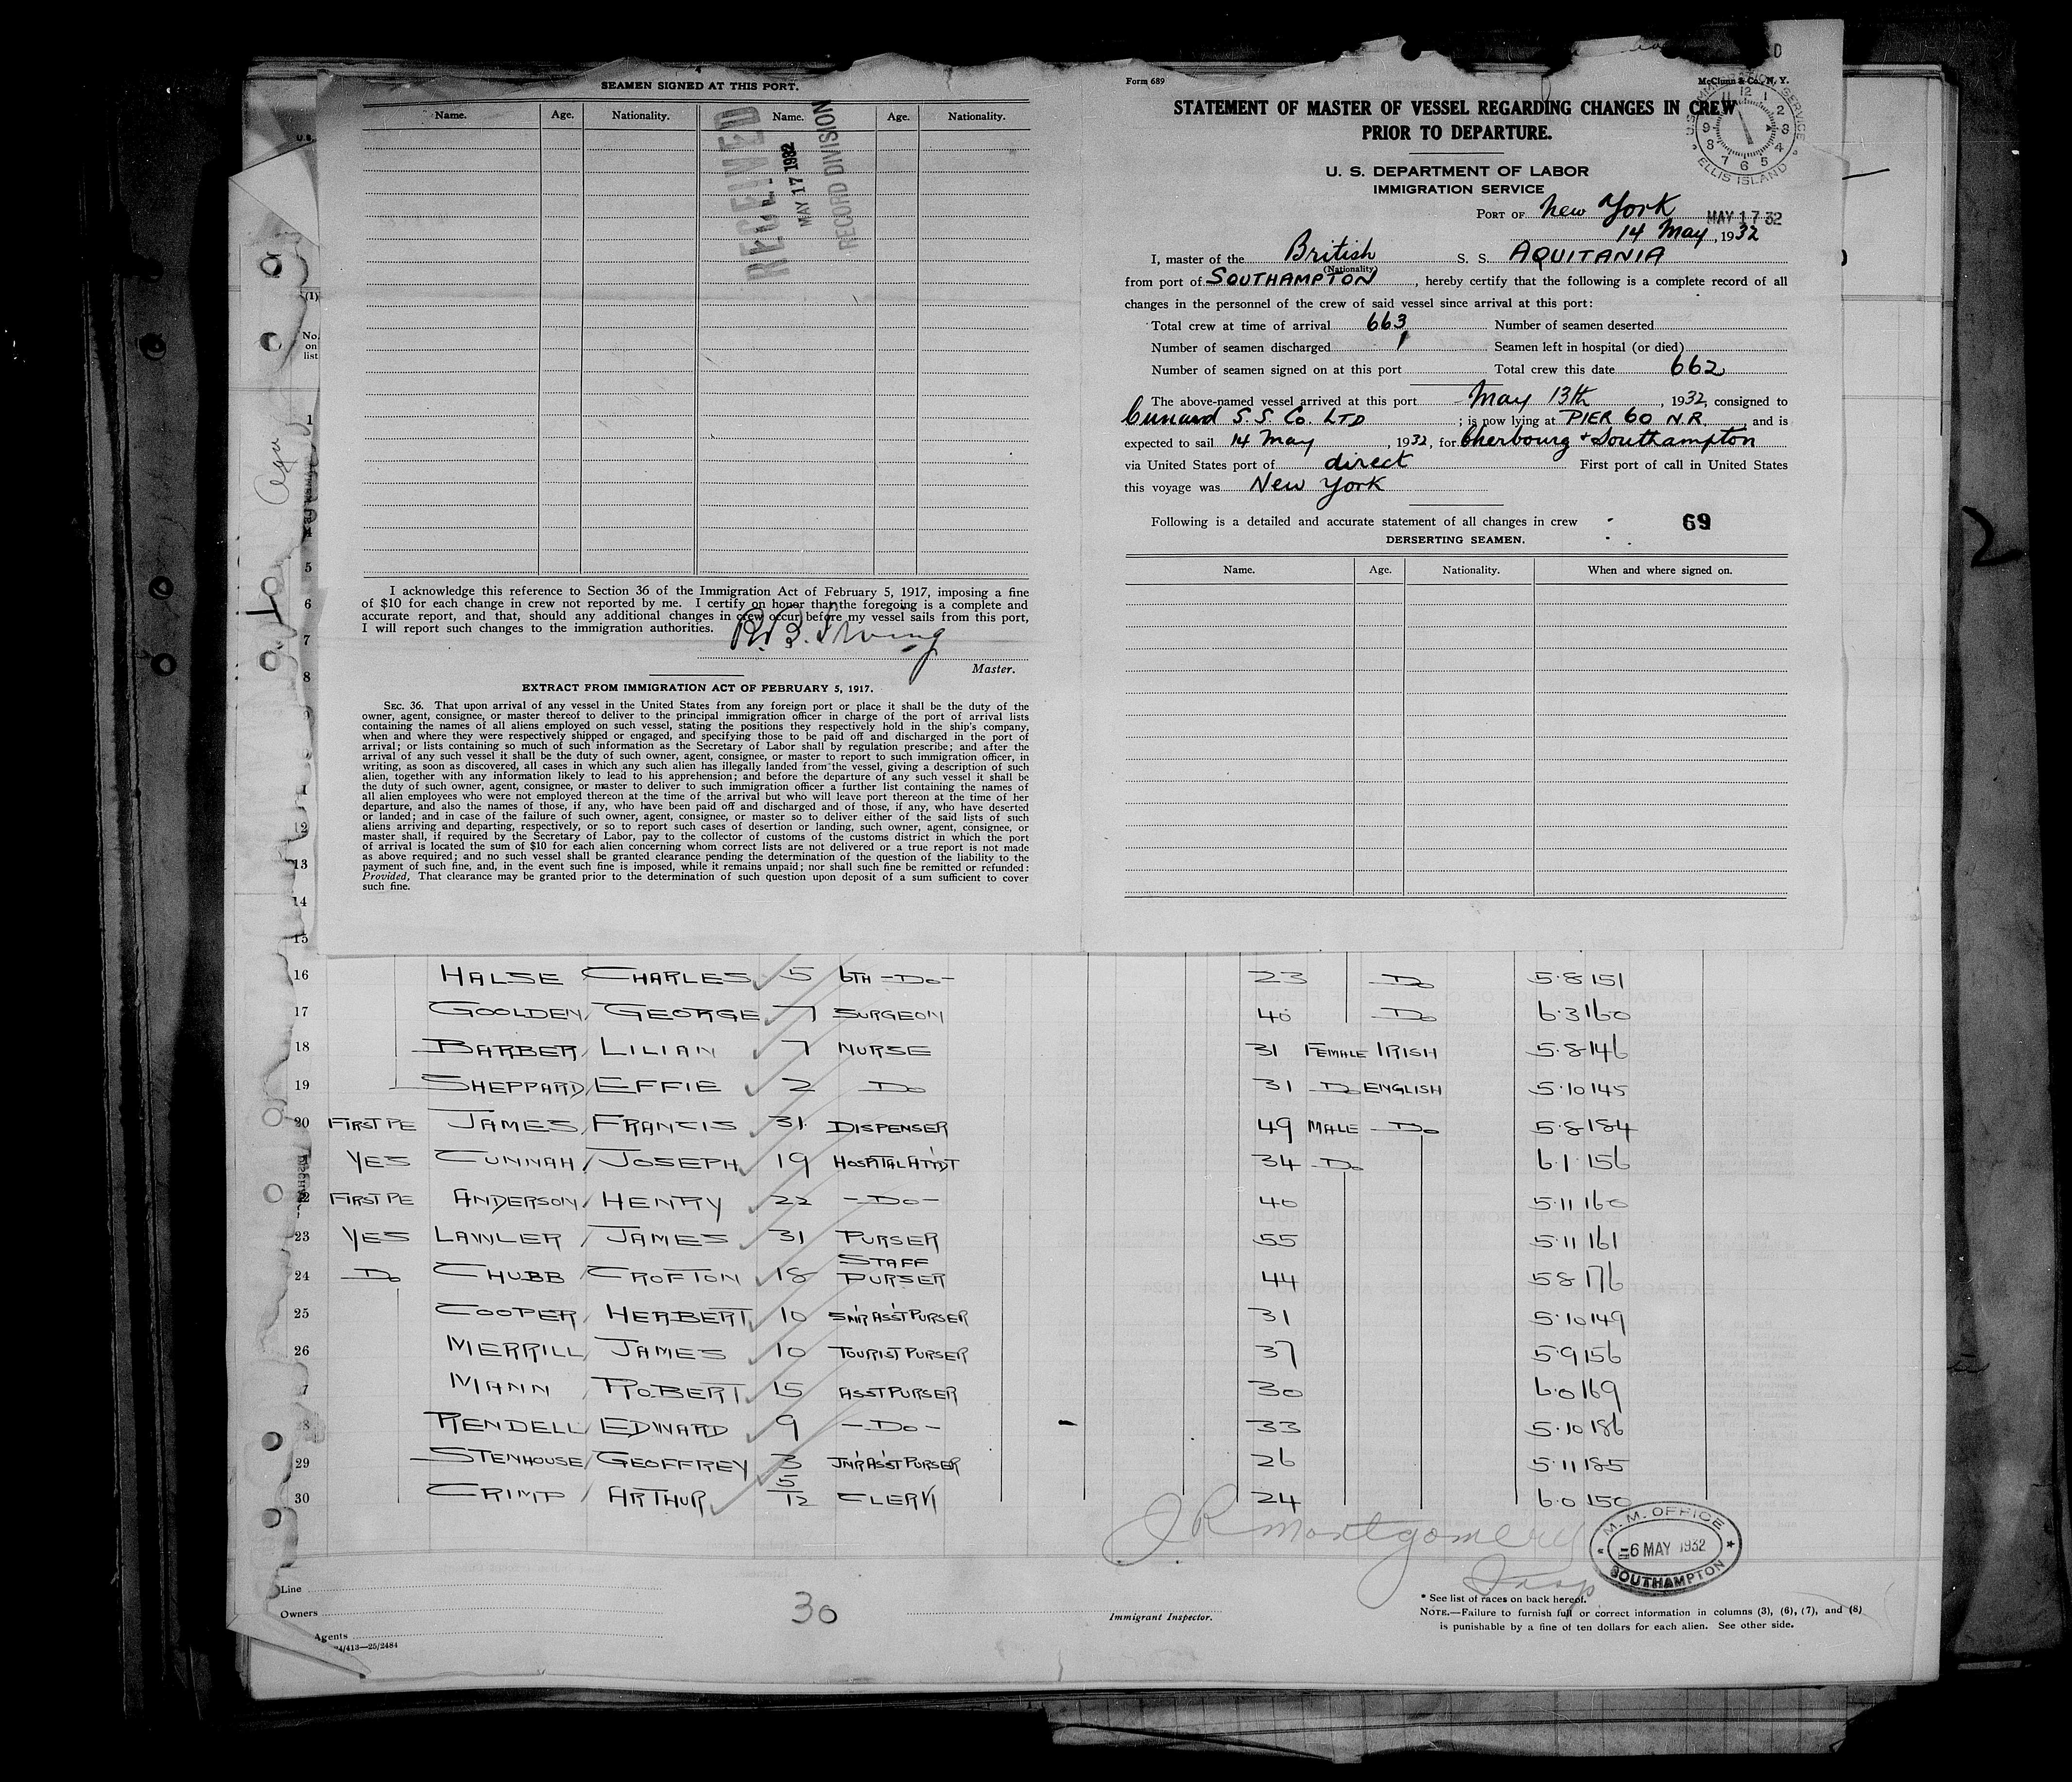 SEAMEN SIGNED AT THIS PORT.
Name. Age. Nationality. Name. Age. Nationality.
RECEIVED
MAY 17 1932
RECORD DIVISION
I acknowledge this reference to Section 36 of the Immigration Act of February 5, 1917, imposing a fine
of $10 for each change in crew not reported by me. I certify on honor that the foregoing is a complete and
accurate report, and that, should any additional changes in crew occur before my vessel sails from this port,
I will report such changes to the immigration authorities.
R.B. Irving
Master.
EXTRACT FROM IMMIGRATION ACT OF FEBRUARY 5, 1917.
SEC. 36. That upon arrival of any vessel in the United States from any foreign port or place it shall be the duty of the
owner, agent, consignee, or master thereof to deliver to the principal immigration officer in charge of the port of arrival lists
containing the names of all aliens employed on such vessel, stating the positions they respectively hold in the ship's company,
when and where they were respectively shipped or engaged, and specifying those to be paid off and discharged in the port of
arrival; or lists containing so much of such information as the Secretary of Labor shall by regulation prescribe; and after the
arrival of any such vessel it shall be the duty of such owner, agent, consignee, or master to report to such immigration officer, in
writing, as soon as discovered, all cases in which any such alien has illegally landed from the vessel, giving a description of such
alien, together with any information likely to lead to his apprehension; and before the departure of any such vessel it shall be
the duty of such owner, agent, consignee, or master to deliver to such immigration officer a further list containing the names of
all alien employees who were not employed thereon at the time of the arrival but who will leave port thereon at the time of her
departure, and also the names of those, if any, who have been paid off and discharged and of those, if any, who have deserted
or landed; and in case of the failure of such owner, agent, consignee, or master so to deliver either of the said lists of such
aliens arriving and departing, respectively, or so to report such cases of desertion or landing, such owner, agent, consignee, or
master shall, if required by the Secretary of Labor, pay to the collector of customs of the customs district in which the port
of arrival is located the sum of $10 for each alien concerning whom correct lists are not delivered or a true report is not made
as above required; and no such vessel shall be granted clearance pending the determination of the question of the liability to the
payment of such fine, and, in the event such fine is imposed, while it remains unpaid; nor shall such fine be remitted or refunded:
Provided, That clearance may be granted prior to the determination of such question upon deposit of a sum sufficient to cover
such fine.
Form 689
McClunn & Co., N. Y.
STATEMENT OF MASTER OF VESSEL REGARDING CHANGES IN CREW
PRIOR TO DEPARTURE.
U.S. IMMIGRATION SERVICE ELLIS ISLAND
U. S. DEPARTMENT OF LABOR
IMMIGRATION SERVICE
PORT OF New York MAY 17 32
14 May, 1932
I, master of the British S. S. AQUITANIA
(Nationality)
from port of SOUTHAMPTON, hereby certify that the following is a complete record of all
changes in the personnel of the crew of said vessel since arrival at this port:
Total crew at time of arrival 663 Number of seamen deserted
Number of seamen discharged 1 Seamen left in hospital (or died)
Number of seamen signed on at this port Total crew this date 662
The above-named vessel arrived at this port May 13th, 1932, consigned to
Cunard S.S. Co. LTD; is now lying at PIER 60 N.R. and is
expected to sail 14 May, 1932, for Cherbourg + Southampton
via United States port of direct First port of call in United States
this voyage was New York
Following is a detailed and accurate statement of all changes in crew 69
DERSERTING SEAMEN.
Name. Age. Nationality. When and where signed on.
2
No. on list
(1)
1
5
6
7
8
12
13
14
15
16 HALSE CHARLES 5 6TH -Do- 23 Do 5.8 151
17 GOOLDEN GEORGE 7 SURGEON 40 Do 6.3 160
18 BARBER LILIAN 7 NURSE 31 FEMALE IRISH 5.8 146
19 SHEPPARD EFFIE 2 Do 31 Do ENGLISH 5.10 145
20 FIRST PE JAMES FRANCIS 31 DISPENSER 49 MALE Do 5.8 184
YES CUNNAH JOSEPH 19 HOSPITAL ATTDT 34 Do 6.1 156
22 FIRST PE ANDERSON HENRY 22 -Do- 40 5.11 160
23 YES LAWLER JAMES 31 PURSER 55 5.11 161
24 Do CHUBB CROFTON 18 STAFF PURSER 44 5.8 176
25 COOPER HERBERT 10 SNR ASST PURSER 31 5.10 149
26 MERRILL JAMES 10 TOURIST PURSER 37 5.9 156
7 MANN ROBERT 15 ASST PURSER 30 6.0 169
28 RENDELL EDWARD 9 -Do- 33 5.10 186
29 STENHOUSE GEOFFREY 3 JNR ASST PURSER 26 5.11 185
30 CRIMP ARTHUR 5/12 CLERK 24 6.0 150
J R Montgomery
Insp
M. M. OFFICE
-6 MAY 1932
SOUTHAMPTON
Line
Owners
Agents
30
Immigrant Inspector.
* See list of races on back hereof.
NOTE.—Failure to furnish full or correct information in columns (3), (6), (7), and (8)
is punishable by a fine of ten dollars for each alien. See other side.
24/413—25/2484